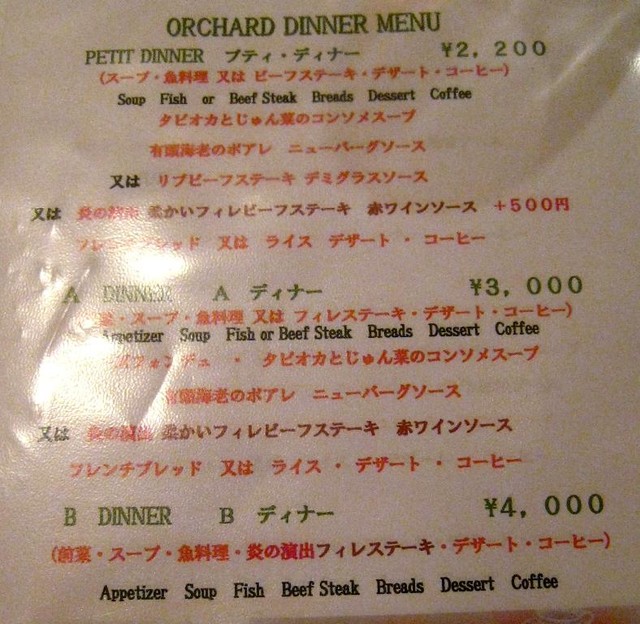 ORCHARD DINNER MENU
PETIT DINNER プティ・ディナー ¥2,200
(スープ・魚料理 又は ビーフステーキ・デザート・コーヒー)
Soup Fish or Beef Steak Breads Dessert Coffee
タピオカとじゅん菜のコンソメスープ
有頭海老のポアレ ニューバーグソース
又は リブビーフステーキ デミグラスソース
又は 炎の演出 柔かいフィレビーフステーキ 赤ワインソース +500円
フレンチブレッド 又は ライス デザート ・ コーヒー
A DINNER A ディナー ¥3,000
・スープ・魚料理 又は フィレステーキ・デザート・コーヒー)
Appetizer Soup Fish or Beef Steak Breads Dessert Coffee
・ タピオカとじゅん菜のコンソメスープ
有頭海老のポアレ ニューバーグソース
又は 炎の演出 柔かいフィレビーフステーキ 赤ワインソース
フレンチブレッド 又は ライス ・ デザート ・ コーヒー
B DINNER B ディナー ¥4,000
(前菜・スープ・魚料理・炎の演出フィレステーキ・デザート・コーヒー)
Appetizer Soup Fish Beef Steak Breads Dessert Coffee